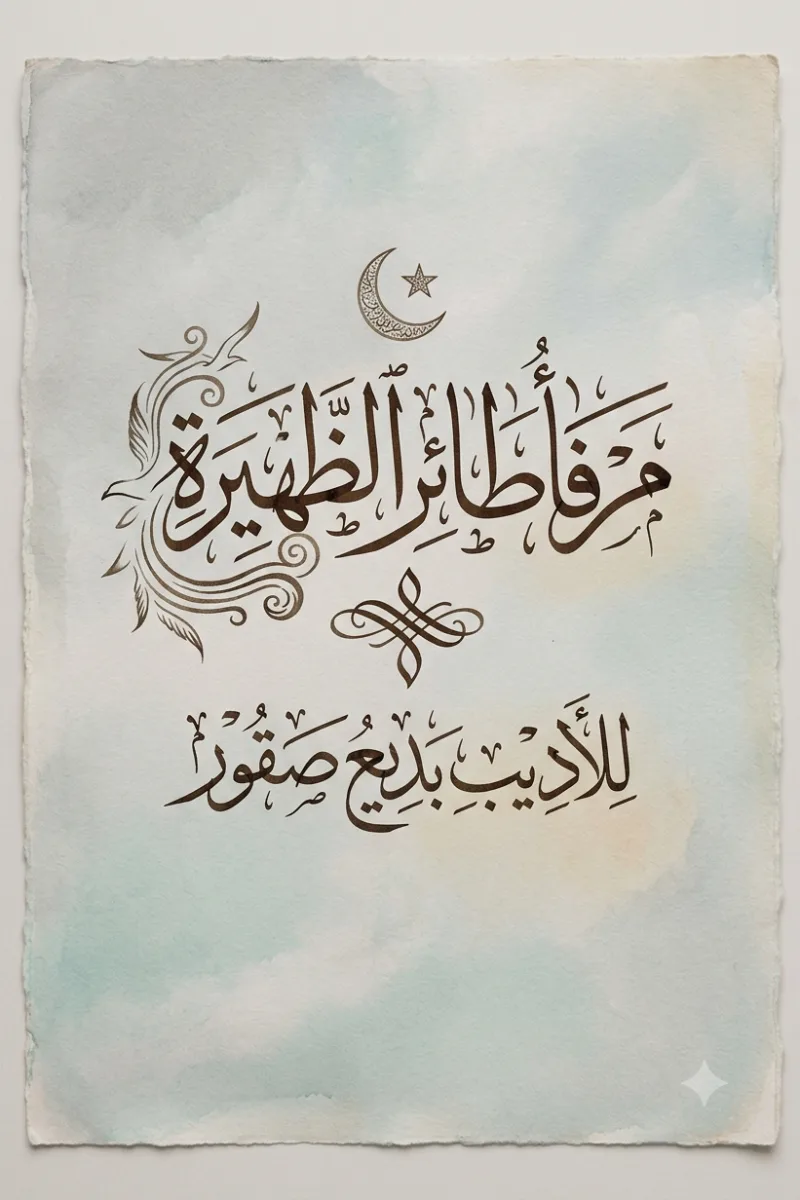 مَرْفَأُ طَائِرِ ٱلظَّهِيرَةِ
لِلأَدِيبِ بَدِيعُ صَقُورْ